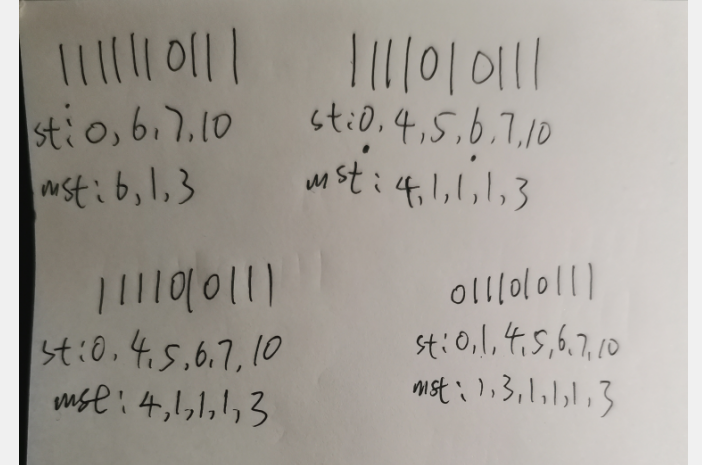 1111110111
st:0,6,7,10
mst:6,1,3
1111010111
st:0,4,5,6,7,10
mst:4,1,1,1,3
1111010111
st:0,4,5,6,7,10
mst:4,1,1,1,3
0111010111
st:0,1,4,5,6,7,10
mst:1,3,1,1,1,3